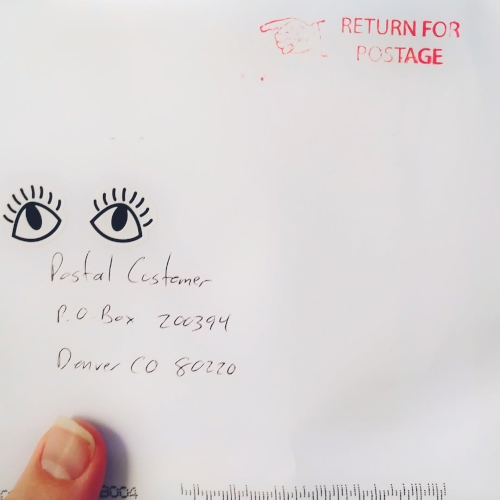 RETURN FOR
POSTAGE
Postal Customer
P.O. Box 200394
Denver CO 80220